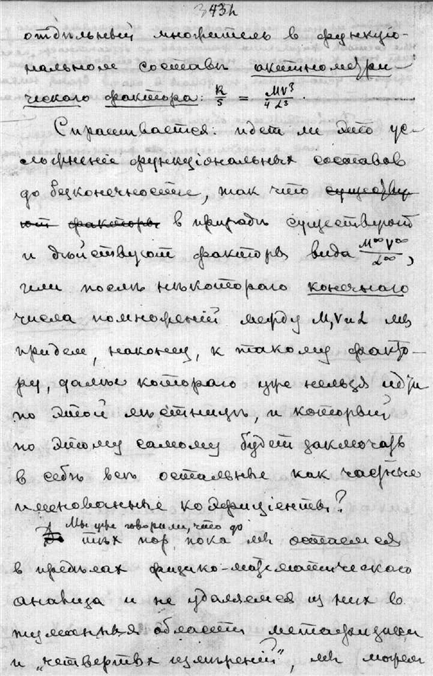 343 h
отдѣльный множитель въ функціо-
нальномъ составѣ актинометри-
ческаго фактора: R/5 = MV³/4L³.
Спрашивается: идетъ ли это ус-
ложненіе функціональныхъ составовъ
до безконечности, такъ что существу-
ютъ факторы въ природѣ существуютъ
и дѣйствуютъ факторы вида M∞V∞/L∞,
или послѣ нѣкотораго конечнаго
числа помноженій между M, V и L мы
придемъ, наконецъ, къ такому факто-
ру, далѣе котораго уже нельзя идти
по этой лѣстницѣ, и который
по этому самому будетъ заключать
въ себѣ всѣ остальные какъ частные
именованные коэффиціенты?
Мы уже говорили, что до
тѣхъ поръ, пока мы остаемся
въ предѣлахъ физико-математическаго
анализа и не удаляемся изъ нихъ въ
туманныя области метафизики
и „четвертыхъ измѣреній", мы можемъ